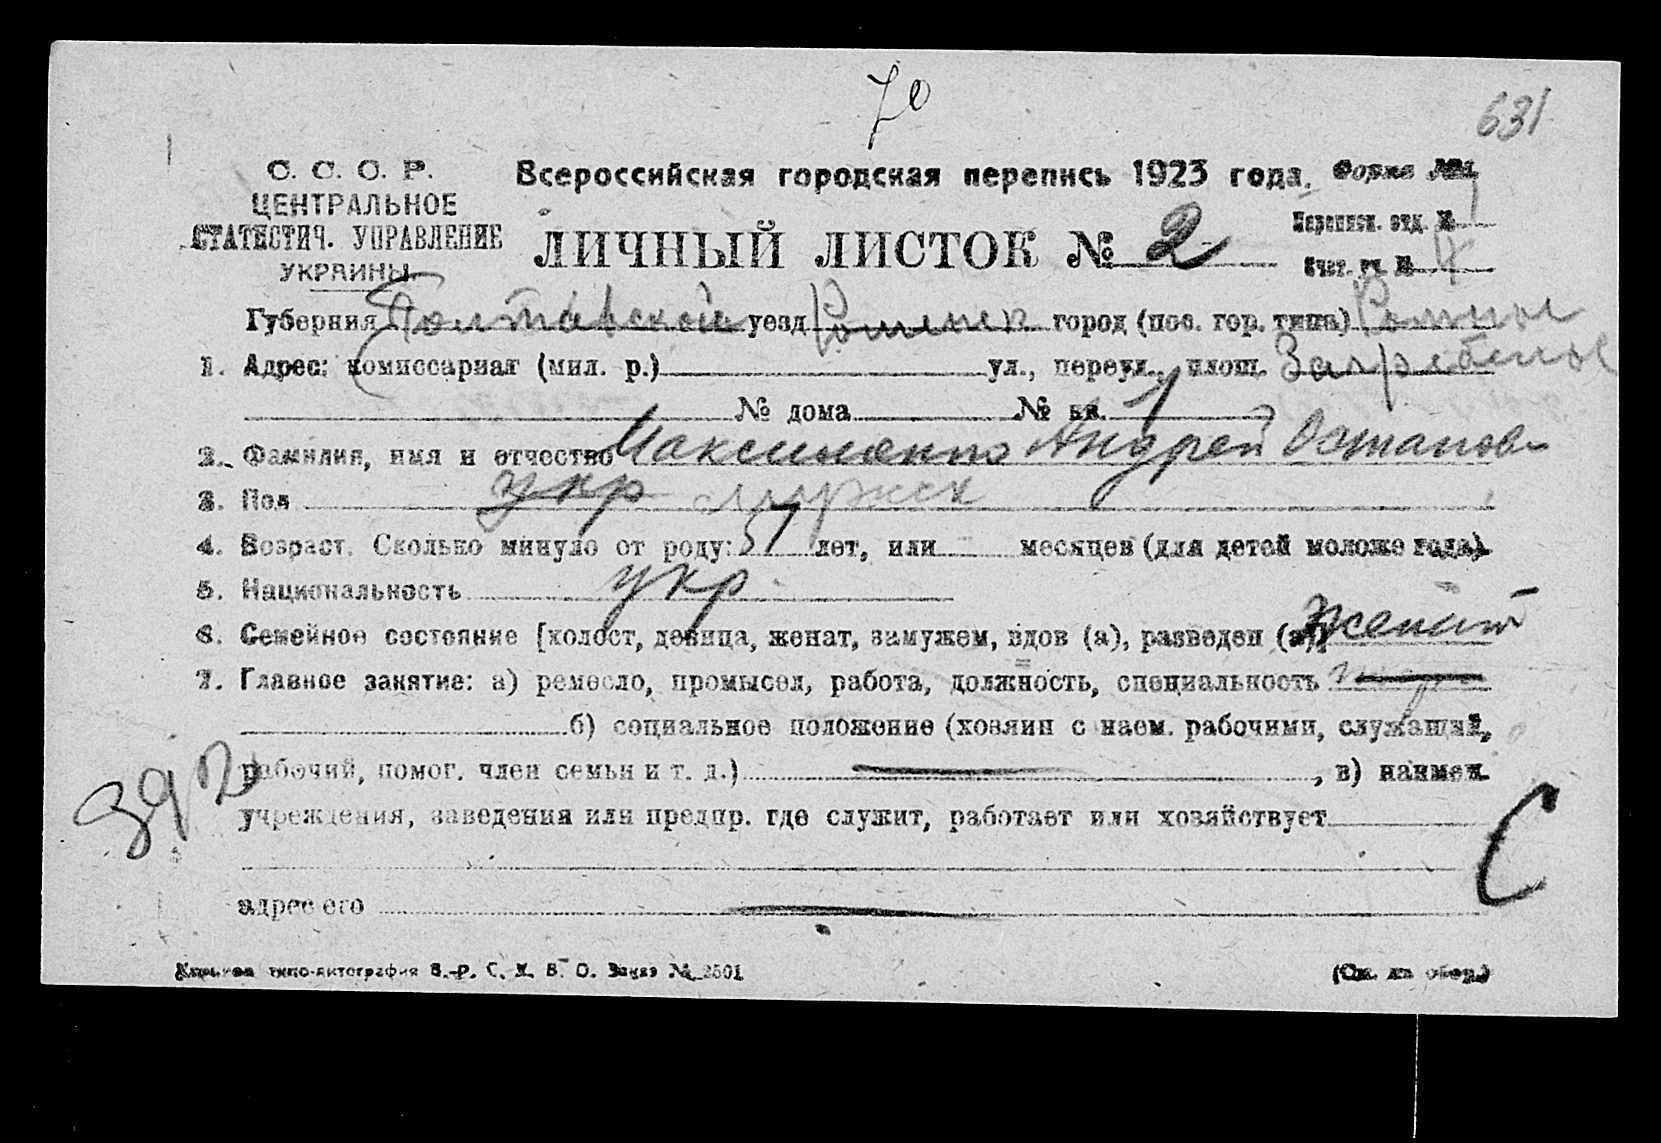 70
631
С. С. С. Р.
ЦЕНТРАЛЬНОЕ
СТАТИСТИЧ. УПРАВЛЕНИЕ
УКРАИНЫ
Всероссийская городская перепись 1923 года. Форма №1
ЛИЧНЫЙ ЛИСТОК № 2
Переписн. отд. № 1
Счет. уч. № 4
Губерния Полтавской уезд Роменск город (пос. гор. типа) Ромны
1. Адрес: комиссариат (мил. р.) ул., переул., площ.
№ дома № кв. 1
2. Фамилия, имя и отчество Максименко Андрей Остапов
3. Пол укр мужск
4. Возраст. Сколько минуло от роду: 57 лет, или месяцев (для детей моложе года).
5. Национальность укр
6. Семейное состояние [холост, девица, женат, замужем, вдов (а), разведен (а)] женат
7. Главное занятие: а) ремесло, промысел, работа, должность, специальность
б) социальное положение (хозяин с наем. рабочими, служащий,
рабочий, помог. член семьи и т. д.) , в) наимен.
учреждения, заведения или предпр. где служит, работает или хозяйствует
С
адрес его
типо-литография В.-Р. С. Х. В. О. Заказ № 2501
(См. на обор.)